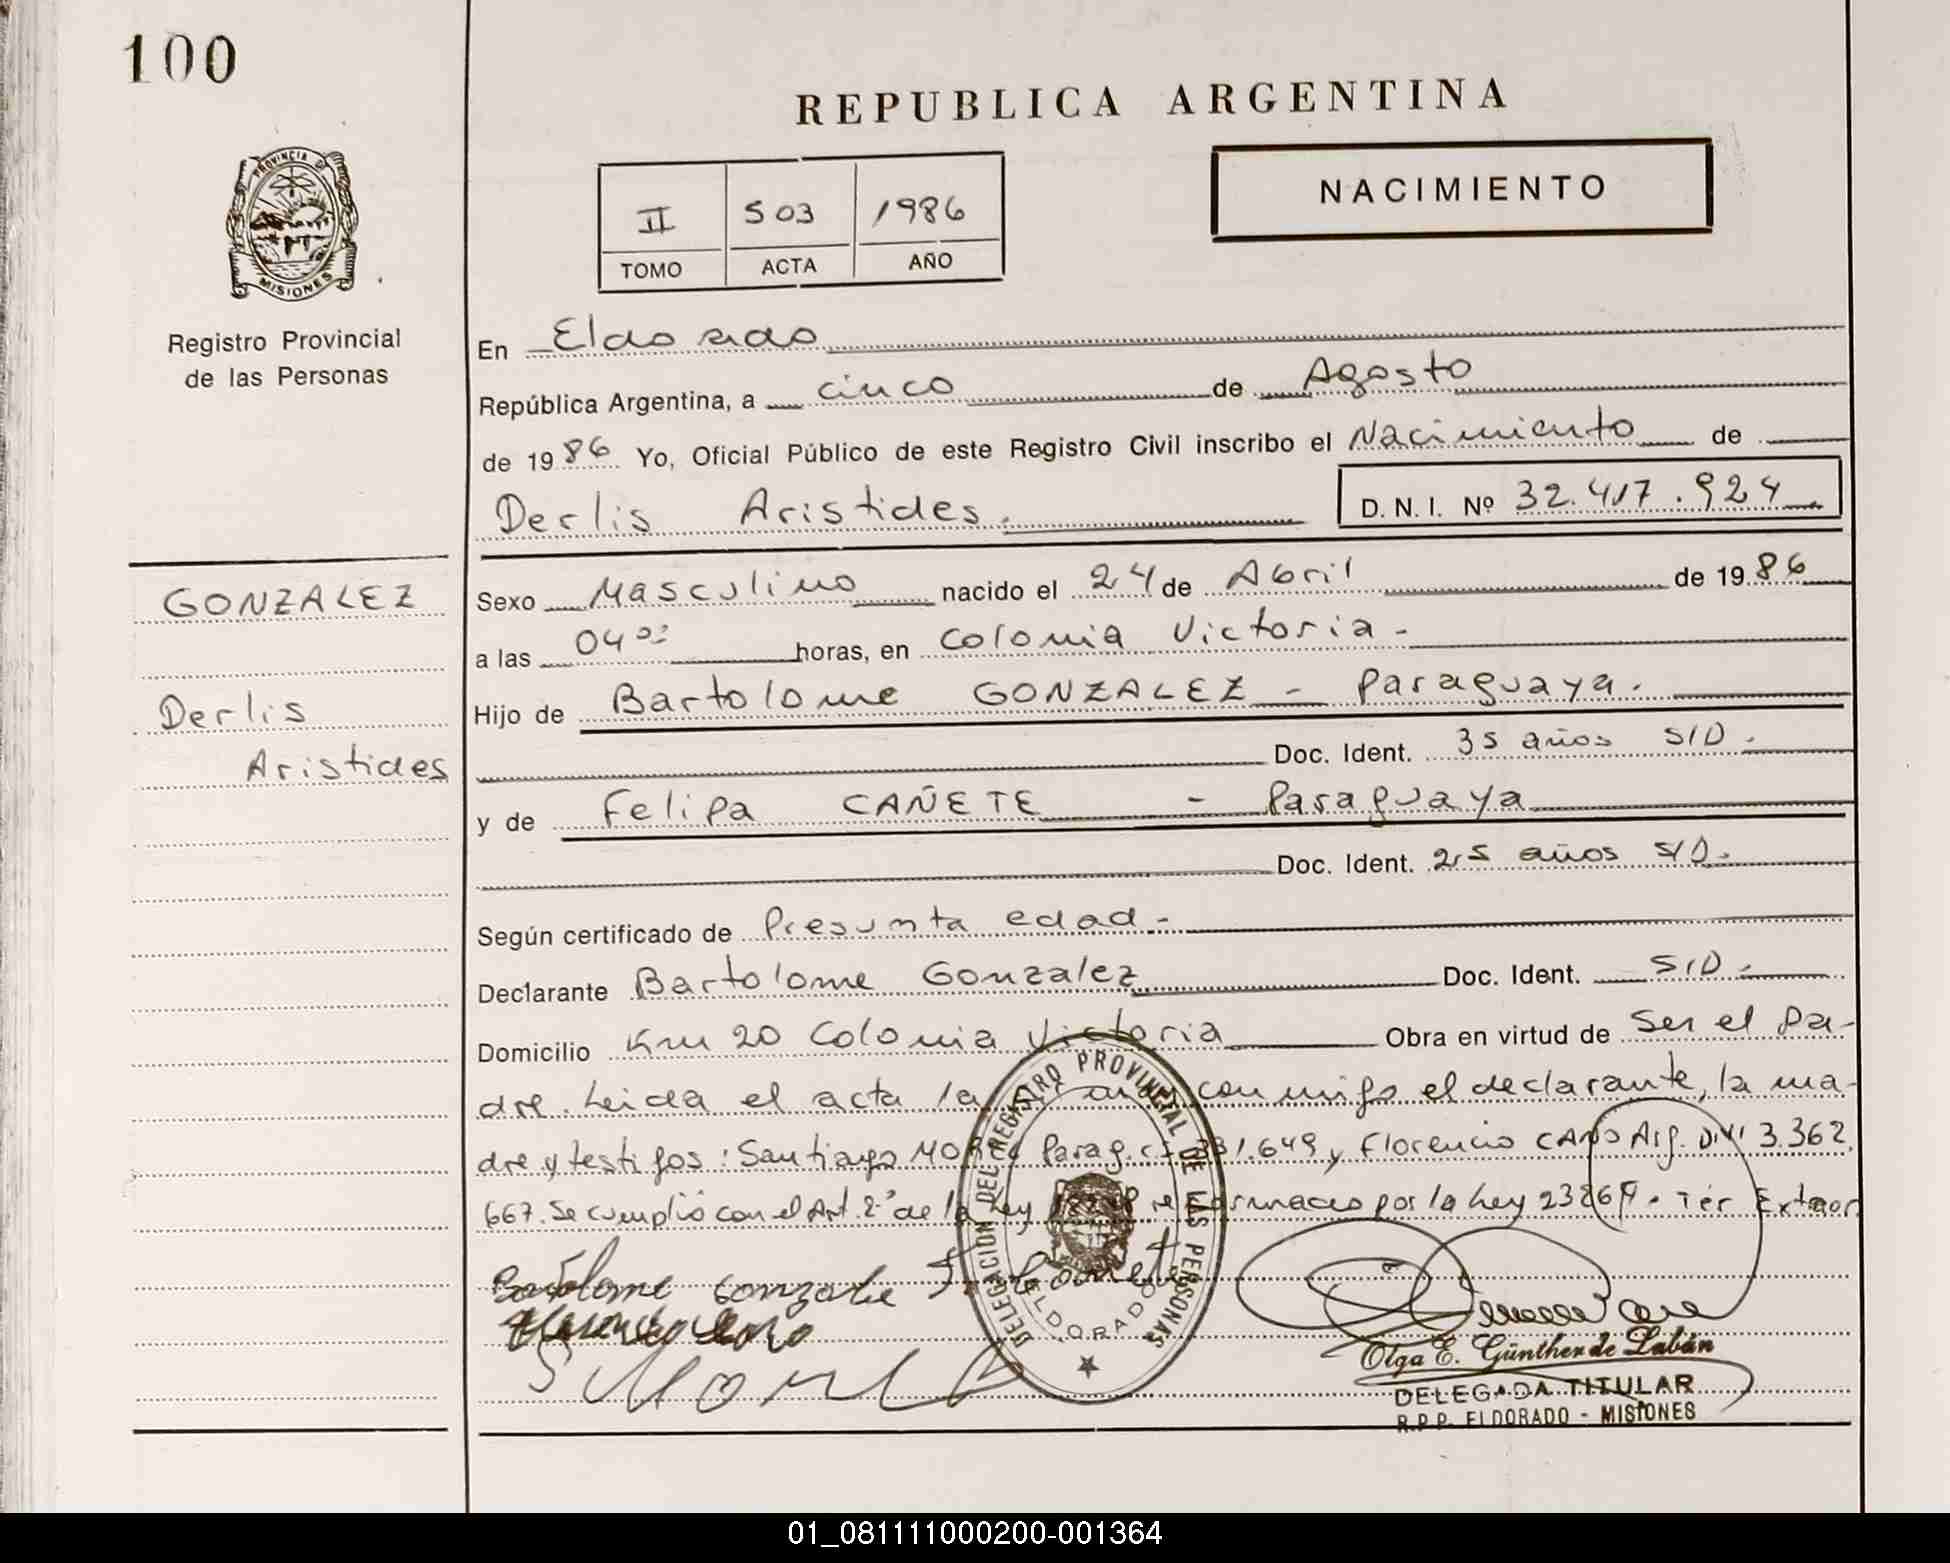 100
REPUBLICA ARGENTINA
NACIMIENTO
II 503 1986
TOMO ACTA AÑO
PROVINCIA D
MISIONES
Registro Provincial
de las Personas
En Eldorado
República Argentina, a cinco de Agosto
de 1986 Yo, Oficial Público de este Registro Civil inscribo el Nacimiento de
Derlis Aristides.
D. N. I. Nº 32.417.924
GONZALEZ
Derlis
Aristides
Sexo Masculino nacido el 24 de Abril de 1986
a las 04 horas, en Colonia Victoria -
Hijo de Bartolome GONZALEZ - Paraguaya.
Doc. Ident. 35 años S/D.
y de Felipa CAÑETE - Paraguaya
Doc. Ident. 25 años S/D.
Según certificado de Presunta edad -
Declarante Bartolome Gonzalez Doc. Ident. S/D.
Domicilio Km 20 Colonia Victoria Obra en virtud de Ser el Pa-
dre. Leida el acta la conmigo el declarante, la ma-
dre y testigos: Santiago Parag. 649 y Florencio CANO Arg. DNI 3.362.
667. Se cumplió con el Art. 2º de la Ley por la Ley Ter Extraor
Bartolome Gonzale
DELEGACION DEL REGISTRO PROVINCIAL DE LAS PERSONAS
ELDORADO
Olga E. Günther de Labán
DELEGADA TITULAR
R.P.P. ELDORADO - MISIONES
01_081111000200-001364